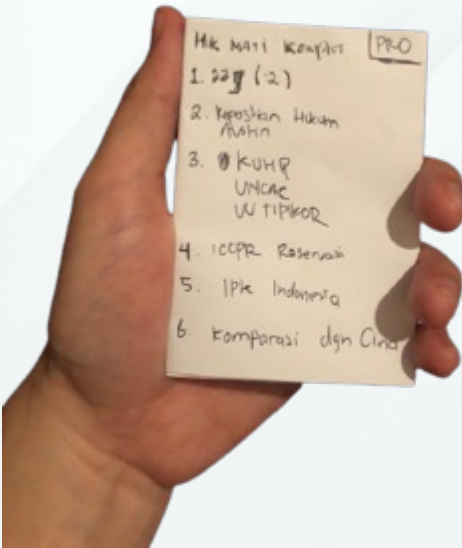 Huk Mati Koruptor PRO
1. 22 (2)
2. Kepastian Hukum
3. KUHP
UNCAC
UU TIPIKOR
4. ICCPR Reservasi
5. IPK Indonesia
6. Komparasi dgn Cina